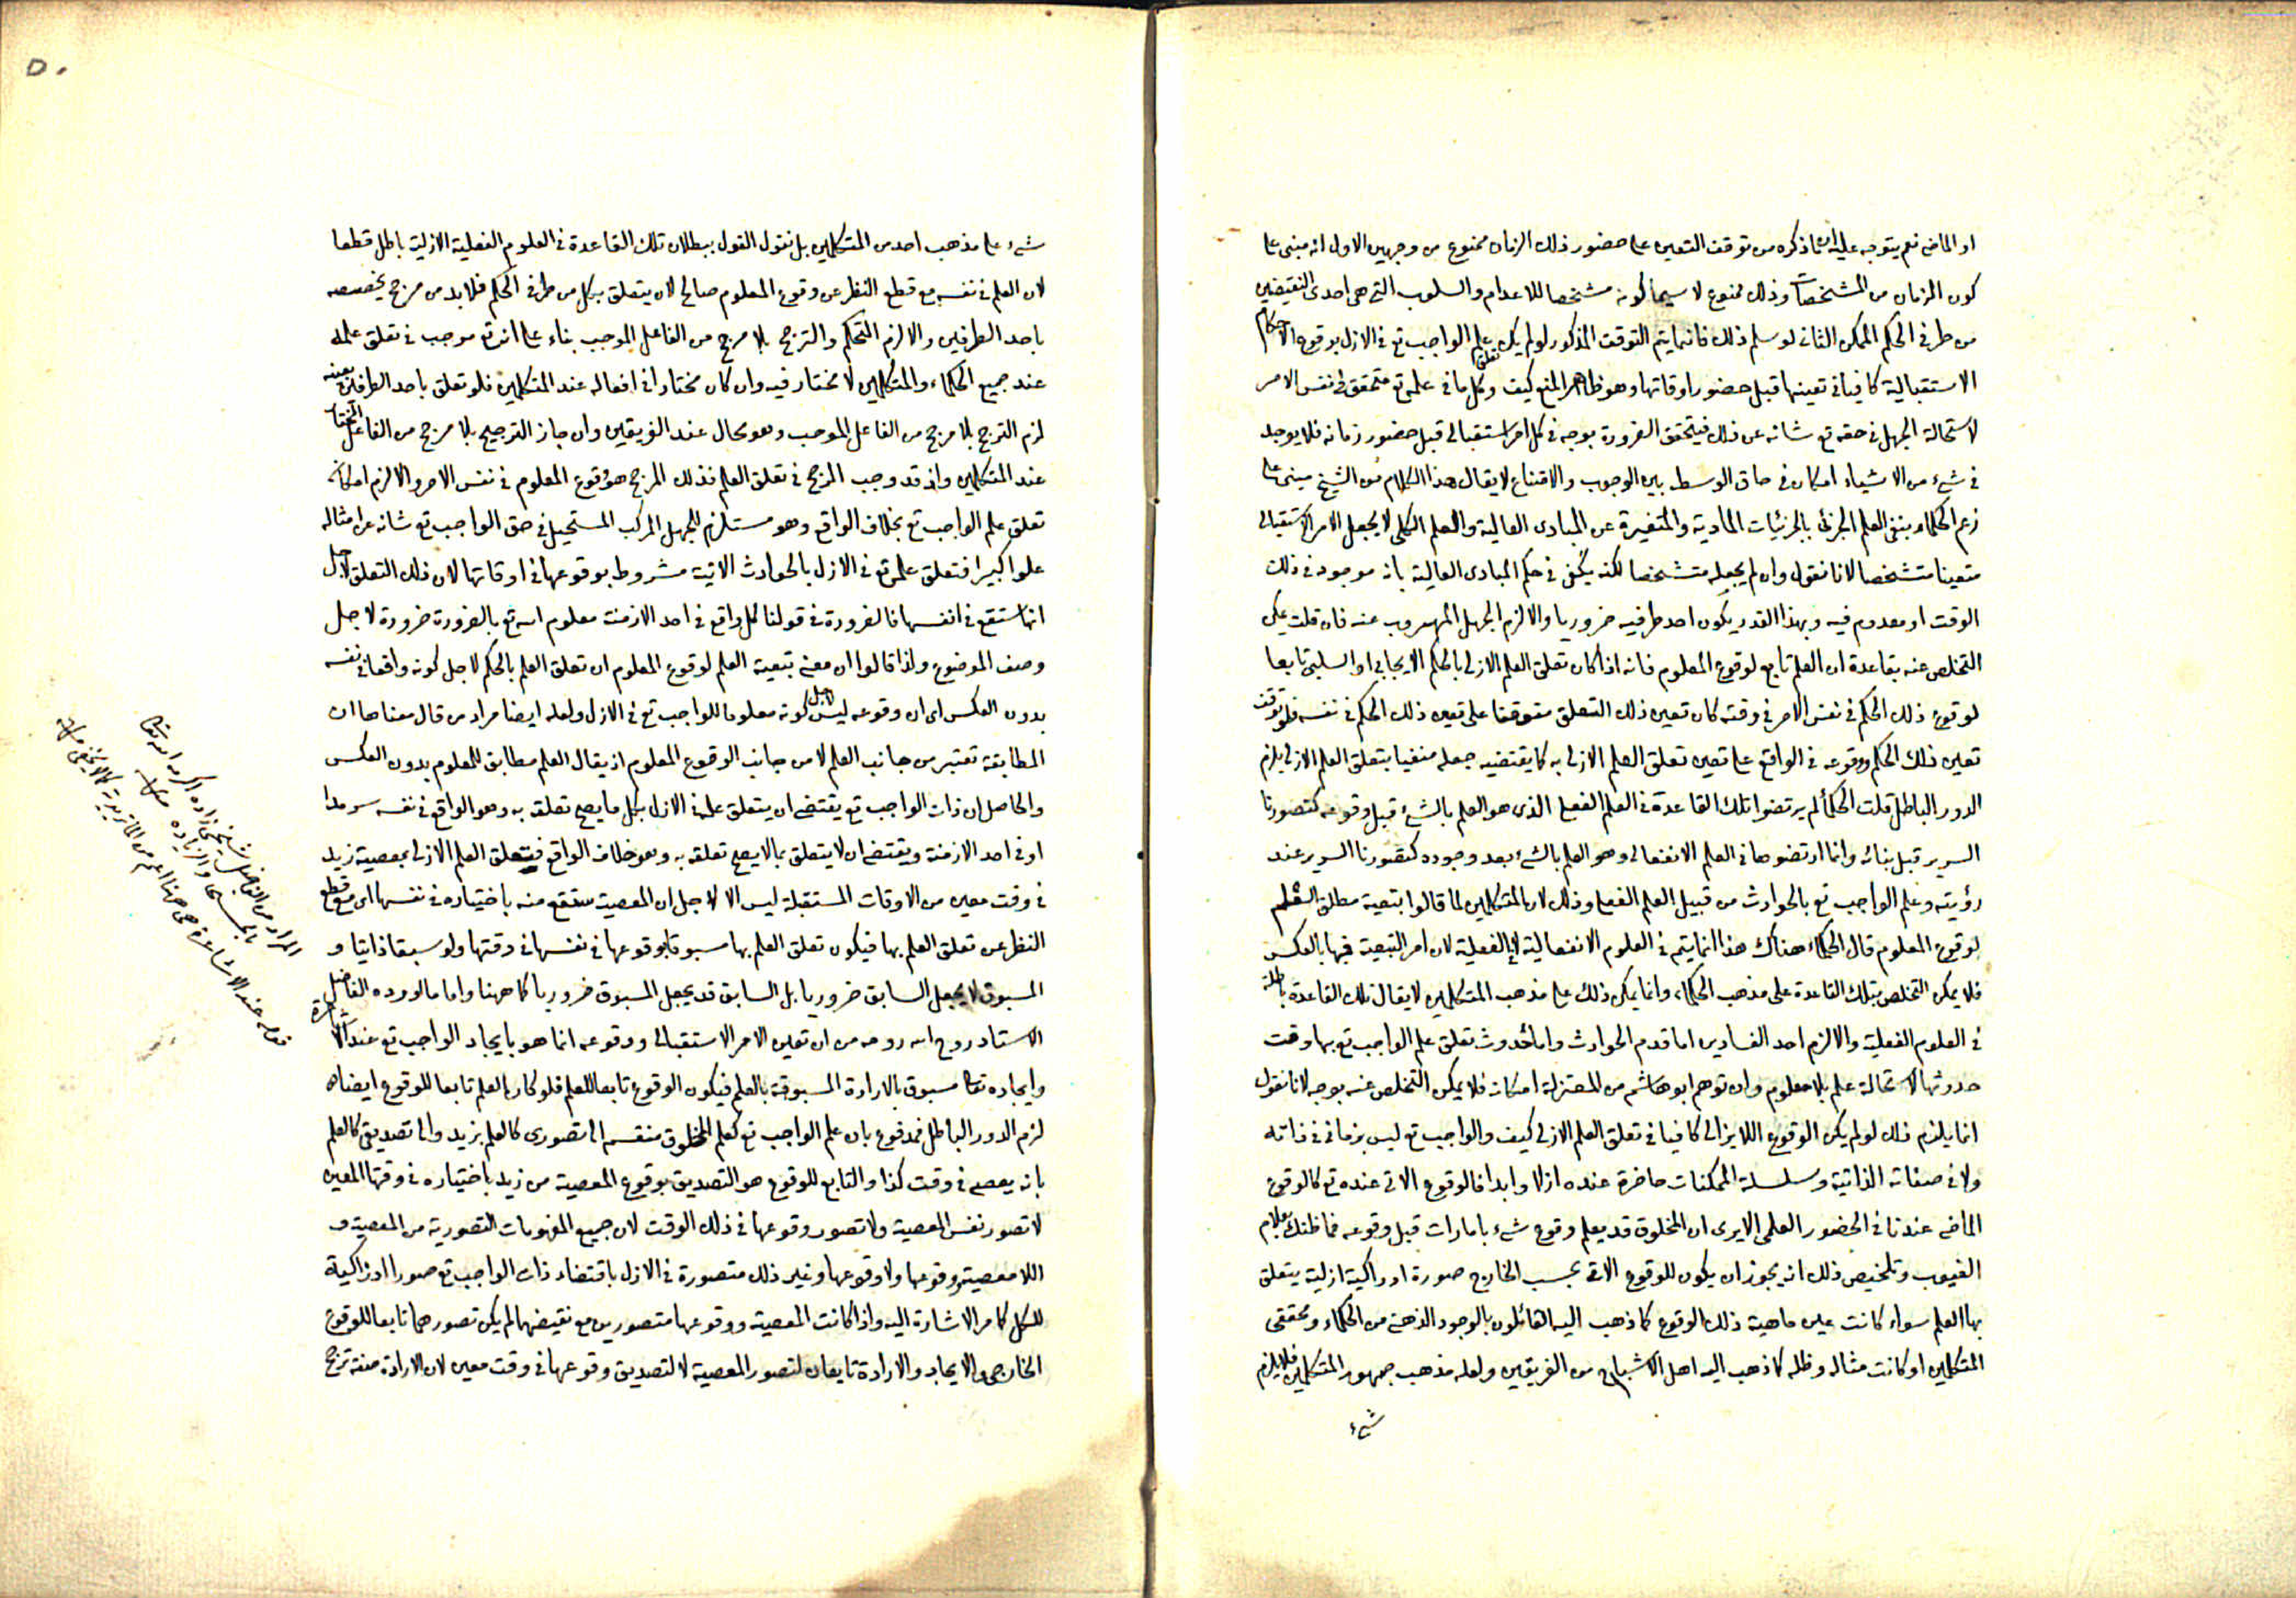 او الماضى نعم يتوجه عليه ان ما ذكره من توقف التعين على حضور ذلك الزمان ممنوع من وجهين الاول انه مبنى على
كون الزمان من المشخصات وذلك ممنوع لا سيما كونه مشخصا للاعدام والسلوب التى هى احدى النقيضين
من طرفى الحكم الممكن الثانى لو سلم ذلك فانما يتم التوقف المذكور لو لم يكن تعلق علم الواجب تع فى الازل بوقوع الاحكام
الاستقبالية كافيا فى تعينها قبل حضور اوقاتها وهو ظاهر المنع كيف وكل ما فى علمه تع متحقق فى نفس الامر
لاستحالة الجهل فى حقه تع شانه عن ذلك فيتحقق الضرورة بوجه فى كل امر استقبالى قبل حضور زمانه فلا يوجد
فى شىء من الاشياء امكان فى حاق الوسط بين الوجوب والامتناع لا يقال هذا الكلام من الشيخ مبنى على
زعم الحكماء بنفى العلم الجزئى بالجزئيات المادية والمتغيرة عن المبادى العالية والعلم الكلى لا يجعل الامر الاستقبالى
متعينا متشخصا لانا نقول وان لم يجعله متشخصا لكنه يكفى فى حكم المبادى العالية بانه موجود فى ذلك
الوقت او معدوم فيه وبهذا القدر يكون احد طرفيه ضروريا والا لزم الجهل المهروب عنه فان قلت يمكن
التخلص عنه بقاعدة ان العلم تابع لوقوع المعلوم فانه اذا كان تعلق العلم الازلى بالحكم الايجابى او السلبى تابعا
لوقوع ذلك الحكم فى نفس الامر فى وقته كان تعين ذلك التعلق متوقفا على تعين ذلك الحكم فى نفسه فلو توقف
تعين ذلك الحكم ووقوعه فى الواقع على تعين تعلق العلم الازلى به كما يقتضيه جعله منفيا بتعلق العلم الازلى يلزم
الدور الباطل قلت الحكماء لم يرتضوا تلك القاعدة فى العلم الفعلى الذى هو العلم بالشىء قبل وقوعه كتصورنا
السرير قبل بنائه وانما ارتضوها فى العلم الانفعالى وهو العلم بالشىء بعد وجوده كتصورنا السرير عند
رؤيته وعلم الواجب تع بالحوادث من قبيل العلم الفعلى وذلك لان المتكلمين لما قالوا بتبعية مطلق العلم
لوقوع المعلوم قال الحكماء هناك هذا انما يتم فى العلوم الانفعالية لا الفعلية لان امر التبعية فيها بالعكس
فلا يمكن التخلص بتلك القاعدة على مذهب الحكماء وانما يمكن ذلك على مذهب المتكلمين لا يقال تلك القاعدة باطلة
فى العلوم الفعلية والا لزم احد الفسادين اما قدم الحوادث واما حدوث تعلق علم الواجب تع بها وقت
حدوثها لاستحالة علم بلا معلوم وان توهم ابو هاشم من المعتزلة امكانه فلا يمكن التخلص عنه بوجه لانا نقول
انما يلزم ذلك لو لم يكن الوقوع اللا يزالى كافيا فى تعلق العلم الازلى كيف والواجب تع ليس بزمانى فى ذاته
ولا فى صفاته الذاتية وسلسلة الممكنات حاضرة عنده ازلا وابدا فالوقوع الاتى عنده تع كالوقوع
الماضى عندنا فى الحضور العلمى الا يرى ان المخلوق قد يعلم وقوع شىء بامارات قبل وقوعه فما ظنك بعلام
الغيوب وتلخيص ذلك انه يجوز ان يكون للوقوع الاتى بحسب الخارج صورة ادراكية ازلية يتعلق
بها العلم سواء كانت عين ماهية ذلك الوقوع كما ذهب اليه القائلون بالوجود الذهنى من الحكماء ومحققى
المتكلمين او كانت مثاله وظله كما ذهب اليه اهل الاشباح من الفريقين ولعله مذهب جمهور المتكلمين فلا يلزم
شىء
شىء على مذهب احد من المتكلمين بل نقول القول ببطلان تلك القاعدة فى العلوم الفعلية الازلية باطل قطعا
لان العلم فى نفسه مع قطع النظر عن وقوع المعلوم صالح لان يتعلق بكل من طرفى الحكم فلا بد من مرجح يخصصه
باحد الطرفين والا لزم التحكم والترجح بلا مرجح من الفاعل الموجب بناء على انه تع موجب فى تعلق علمه
عند جميع الحكماء والمتكلمين لا مختار فيه وان كان مختارا فى افعاله عند المتكلمين فلو تعلق باحد الطرفين بعينه
لزم الترجح بلا مرجح من الفاعل الموجب وهو محال عند الفريقين وان جاز الترجيح بلا مرجح من الفاعل المختار
عند المتكلمين واذ قد وجب المرجح فى تعلق العلم فذلك المرجح هو وقوع المعلوم فى نفس الامر والا لزم امكان
تعلق علم الواجب تع بخلاف الواقع وهو مستلزم للجهل المركب المستحيل فى حق الواجب تع شانه عن امثاله
علوا كبيرا فتعلق علمه تع فى الازل بالحوادث الاتية مشروط بوقوعها فى اوقاتها لان ذلك التعلق لاجل
انها ستقع فى انفسها فالضرورة فى قولنا كل واقع فى احد الازمنة معلوم الله تع بالضرورة ضرورة لاجل
وصف الموضوع ولذا قالوا ان معنى تبعية العلم لوقوع المعلوم ان تعلق العلم بالحكم لاجل كونه واقعا فى نفسه
بدون العكس اى ان وقوعه ليس لاجل كونه معلوما للواجب تع فى الازل ولعله ايضا مراد من قال معناها ان
المطابقة تعتبر من جانب العلم لا من جانب الوقوع المعلوم اذ يقال العلم مطابق للمعلوم بدون العكس
والحاصل ان ذات الواجب تع يقتضى ان يتعلق علمه فى الازل بكل ما يصح تعلقه به وهو الواقع فى نفسه سرمدا
او فى احد الازمنة ويقتضى ان لا يتعلق بما لا يصح تعلقه به وهو خلاف الواقع فيتعلق العلم الازلى بمعصية زيد
فى وقت معين من الاوقات المستقبلة ليس الا لاجل ان المعصية ستقع منه باختياره فى نفسها اى مع قطع
النظر عن تعلق العلم بها فيكون تعلق العلم بها مسبوقا بوقوعها فى نفسها فى وقتها ولو سبقا ذاتيا و
المسبوق لا يجعل السابق ضروريا بل السابق قد يجعل المسبوق ضروريا كما ههنا واما ما اورده الفاضل
الاستاد روح الله روحه من ان تعين الامر الاستقبالى ووقوعه انما هو بايجاد الواجب تع عند الاشاعرة
وايجاده تعالى مسبوق بالارادة المسبوقة بالعلم فيكون الوقوع تابعا للعلم فلو كان العلم تابعا للوقوع ايضا
لزم الدور الباطل فمدفوع بان علم الواجب تع كعلم المخلوق منقسم الى تصورى كالعلم بزيد والى تصديقى كالعلم
بانه يعصى فى وقت كذا والتابع للوقوع هو التصديق بوقوع المعصية من زيد باختياره فى وقتها المعين
لا تصور نفس المعصية ولا تصور وقوعها فى ذلك الوقت لان جميع المفهومات التصورية من المعصية و
اللا معصية ووقوعها ولا وقوعها وغير ذلك متصورة فى الازل باقتضاء ذات الواجب تع صورا ادراكية
للكل كما مر الاشارة اليه واذا كانت المعصية ووقوعها متصورين مع نقيضهما لم يكن تصورهما تابعا للوقوع
الخارجى والايجاد والارادة تابعان لتصور المعصية لا لتصديق وقوعها فى وقت معين لان الارادة صفة ترجح
المراد من الفاضل شيخى زاده اكرمه الله تعالى
بالحسنى والزيادة
قوله عند الاشاعرة هى ههنا اعم من الماتريدية كما لا يخفى
٥٠